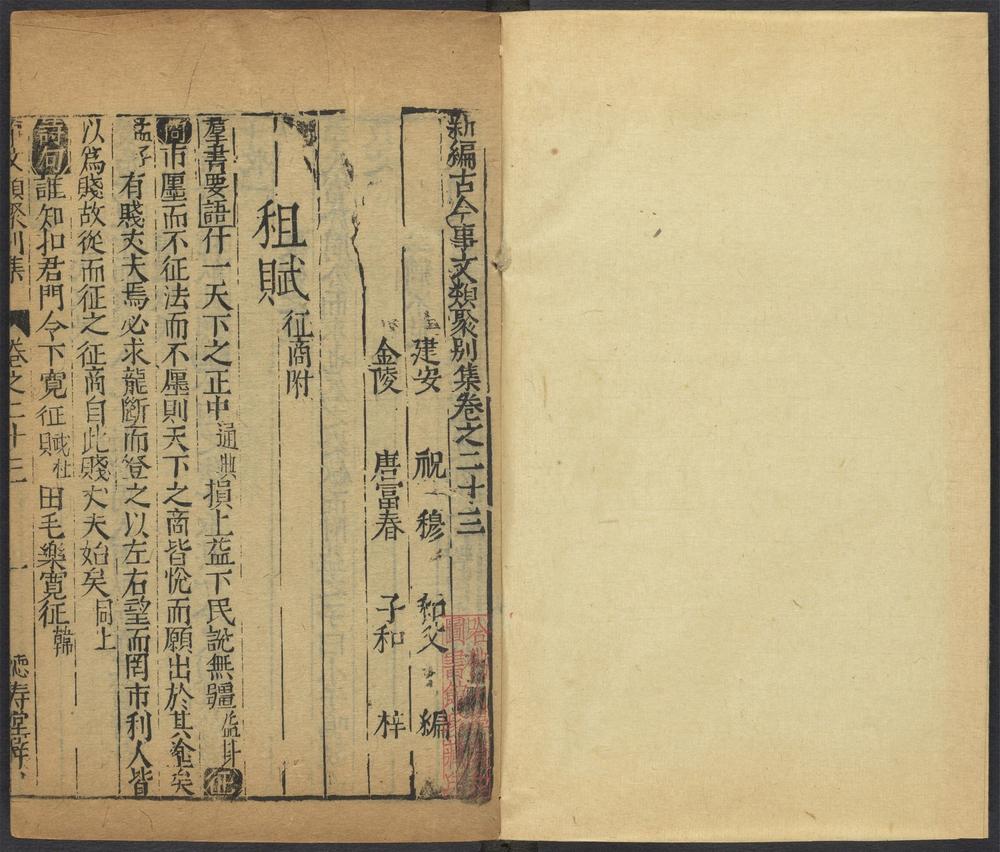 新編古今事文類聚别集卷之二十三
建安 祝 穆 和父 編
金陵 唐富春 子和 梓
租賦 征商附
羣書要語什一天下之正中通典損上益下民說無疆益卦征
商市廛而不征法而不廛則天下之商皆悅而願出於其塗矣
孟子有賤丈夫焉必求龍斷而登之以左右望而罔市利人皆
以爲賤故從而征之征商自此賤丈夫始矣同上
詩句誰知扣君門令下寛征賦杜田毛樂寛征韓
事文類聚別集 卷之二十三 一 德壽堂梓